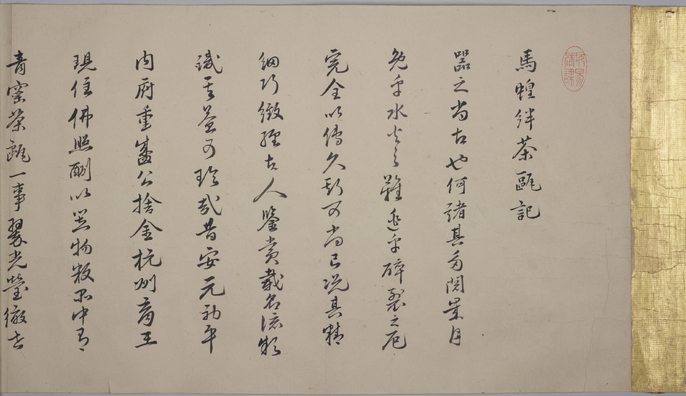 馬蝗絆茶甌記
器之尚古也何諸其多閲歳月
免乎水火之難逃乎碎裂之厄
完全以傳久斯可尚已況其精
細巧緻經古人鑒賞載名
識其益可珍哉昔安元初平
内府重盛公捨金杭州育王
現住佛照酬以器物數品中有
青窯茶甌一事翠光瑩徹世